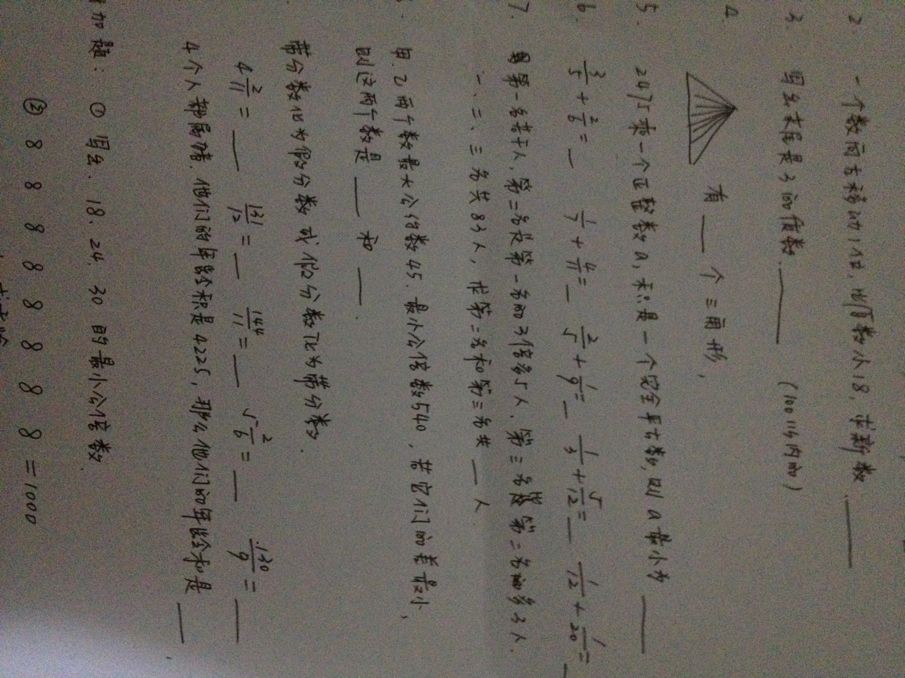 2. 一个数向右移动1位,比原数小18,求新数.____
3. 写出末尾是3的倍数.____ (100以内的)
4. 有__个三角形,
5. 2475乘一个正整数a,乘积是一个完全平方数,则a最小为____
6. 3/5+2/6=_ 1/7+4/11=_ 2/5+1/9=_ 1/3+5/12=_ 1/12+1/20=_
7. 第一名若干人,第二名是第一名的3倍多5人,第三名
一、二、三名共83人,求第二名和第三名共__人
甲.乙两个数最大公约数45.最小公倍数540,若它们的差最小,
则这两个数是____和____
带分数化为假分数或假分数化为带分数.
4 2/11=____ 131/12=__ 144/11=__ 5 2/6=____ 130/9=____
4个人都属猪.他们的年龄积是4225,那么他们的年龄和是____
加题: ① 写出.18.24.30的最小公倍数
② 8 8 8 8 8 8 8 8=1000